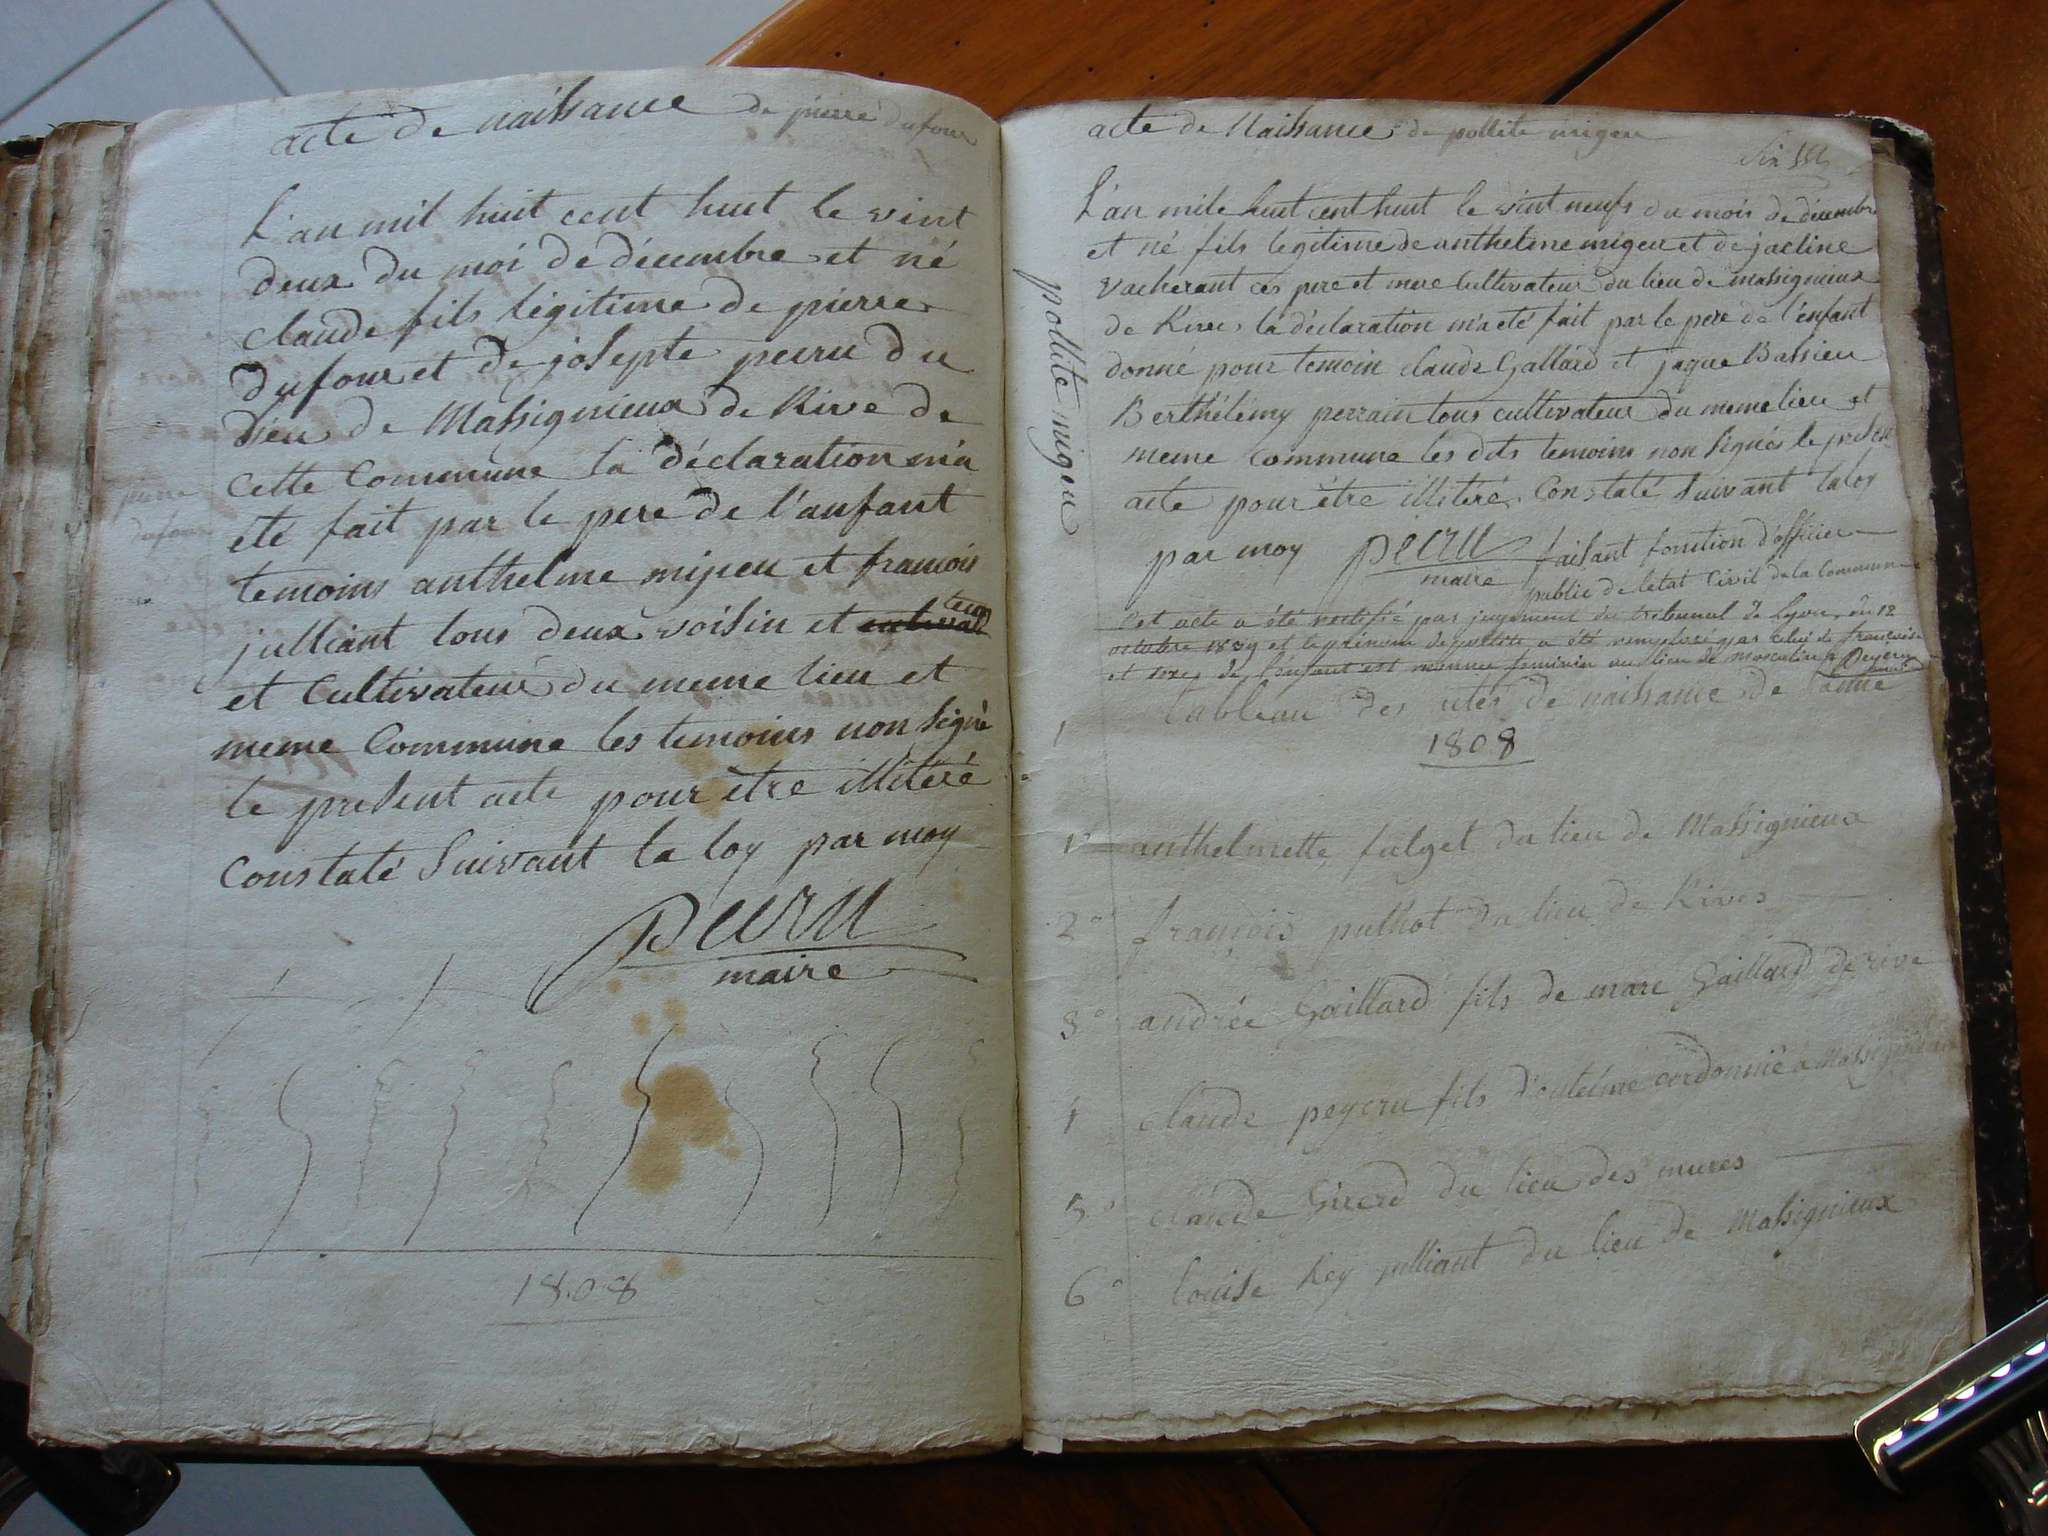 acte de naissance de pierre dufour
L'an mil huit cent huit le vint
deux du moi de décembre et né
claude fils légitime de pierre
dufour et de josepte peuru du
lieu de Massignieux de Rive de
cette Commune la déclaration m'a
eté fait par le pere de l'anfant
temoins anthelme migeu et francois
julliant tous deux voisin et
et Cultivateur du meme lieu et
meme Commune les temoins non signé
le present acte pour etre illiteré
Constaté Suivant la loy par moy
peuru
maire
pierre
dufour
1808
acte de Naissance de pollite migeu
L'an mile huit cent huit le vint neufs du mois de décembre
et né fils legitime de anthelme migeu et de jacline
vacherant ces pere et mere Cultivateur du lieu de massignieux
de Rives la déclaration m'a eté fait par le pere de l'enfant
donné pour temoin claude Gallard et jaque Bassieu
Berthélemy perrain tous cultivateur du meme lieu et
meme Commune les dits temoins non signés le present
acte pour être illiteré Constaté Suivant la loy
par moy peuru faisant fonction d'officier
maire public de letat Civil de la Commune
pollite migeu
Cet acte a été rectifié par jugement du tribunal de en 12
octobre 1839 et le prénom de pollite a été remplacé par celui de françoise
et sexe de l'enfant est reconnue feminin au lieu de masculin
1 tableau des actes de naissance de l'anné
1808
1º anthelmette fulget du lieu de Massignieux
2º françois pulhot du lieu de Rives
3º andrée Gaillard fils de marc Gaillard de rive
4 Claude peycru fils d'antelme cordonnié a Massignieux
5º claude Girerd du lieu des mures
6º louise Rey julliant du lieu de Massignieux